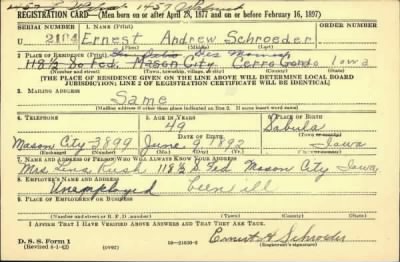 REGISTRATION CARD—(Men born on or after April 28, 1877 and on or before February 16, 1897)
SERIAL NUMBER
1. NAME (Print)
ORDER NUMBER
U 2104
Ernest Andrew Schroeder
(First) (Middle) (Last)
2. PLACE OF RESIDENCE (Print)
118½ So Fed. Mason City Cerro Gordo Iowa
(Number and street) (Town, township, village, or city) (County) (State)
[THE PLACE OF RESIDENCE GIVEN ON THE LINE ABOVE WILL DETERMINE LOCAL BOARD
JURISDICTION; LINE 2 OF REGISTRATION CERTIFICATE WILL BE IDENTICAL]
3. MAILING ADDRESS
Same
[Mailing address if other than place indicated on line 2. If same insert word same]
4. TELEPHONE
5. AGE IN YEARS
6. PLACE OF BIRTH
49
Sabula
DATE OF BIRTH
(Town or county)
Mason City 3899
June 9, 1892
Iowa
(Exchange) (Number)
(Mo.) (Day) (Yr.)
(State or country)
7. NAME AND ADDRESS OF PERSON WHO WILL ALWAYS KNOW YOUR ADDRESS
Mrs. Lena Rush 118½ S Fed Mason City Iowa
8. EMPLOYER'S NAME AND ADDRESS
Unemployed been ill
9. PLACE OF EMPLOYMENT OR BUSINESS
(Number and street or R. F. D. number) (Town) (County) (State)
I AFFIRM THAT I HAVE VERIFIED ABOVE ANSWERS AND THAT THEY ARE TRUE.
D. S. S. Form 1
(Revised 4-1-42) (over) 16—21630-2
Ernest A Schroeder
(Registrant's signature)